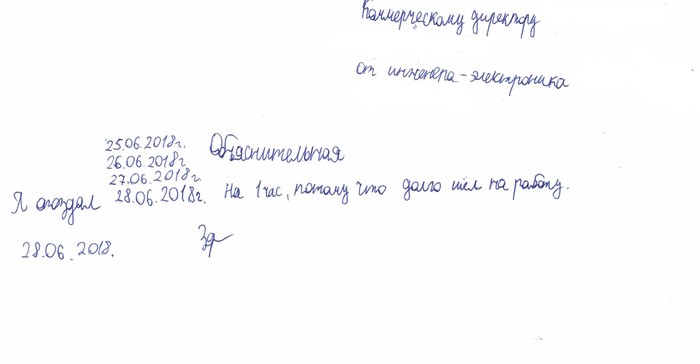 Коммерческому директору
от инженера-электроника
Объяснительная
25.06.2018г.
26.06.2018г
27.06.2018г
Я опоздал 28.06.2018г. на 1 час, потому что долго шёл на работу.
28.06.2018.